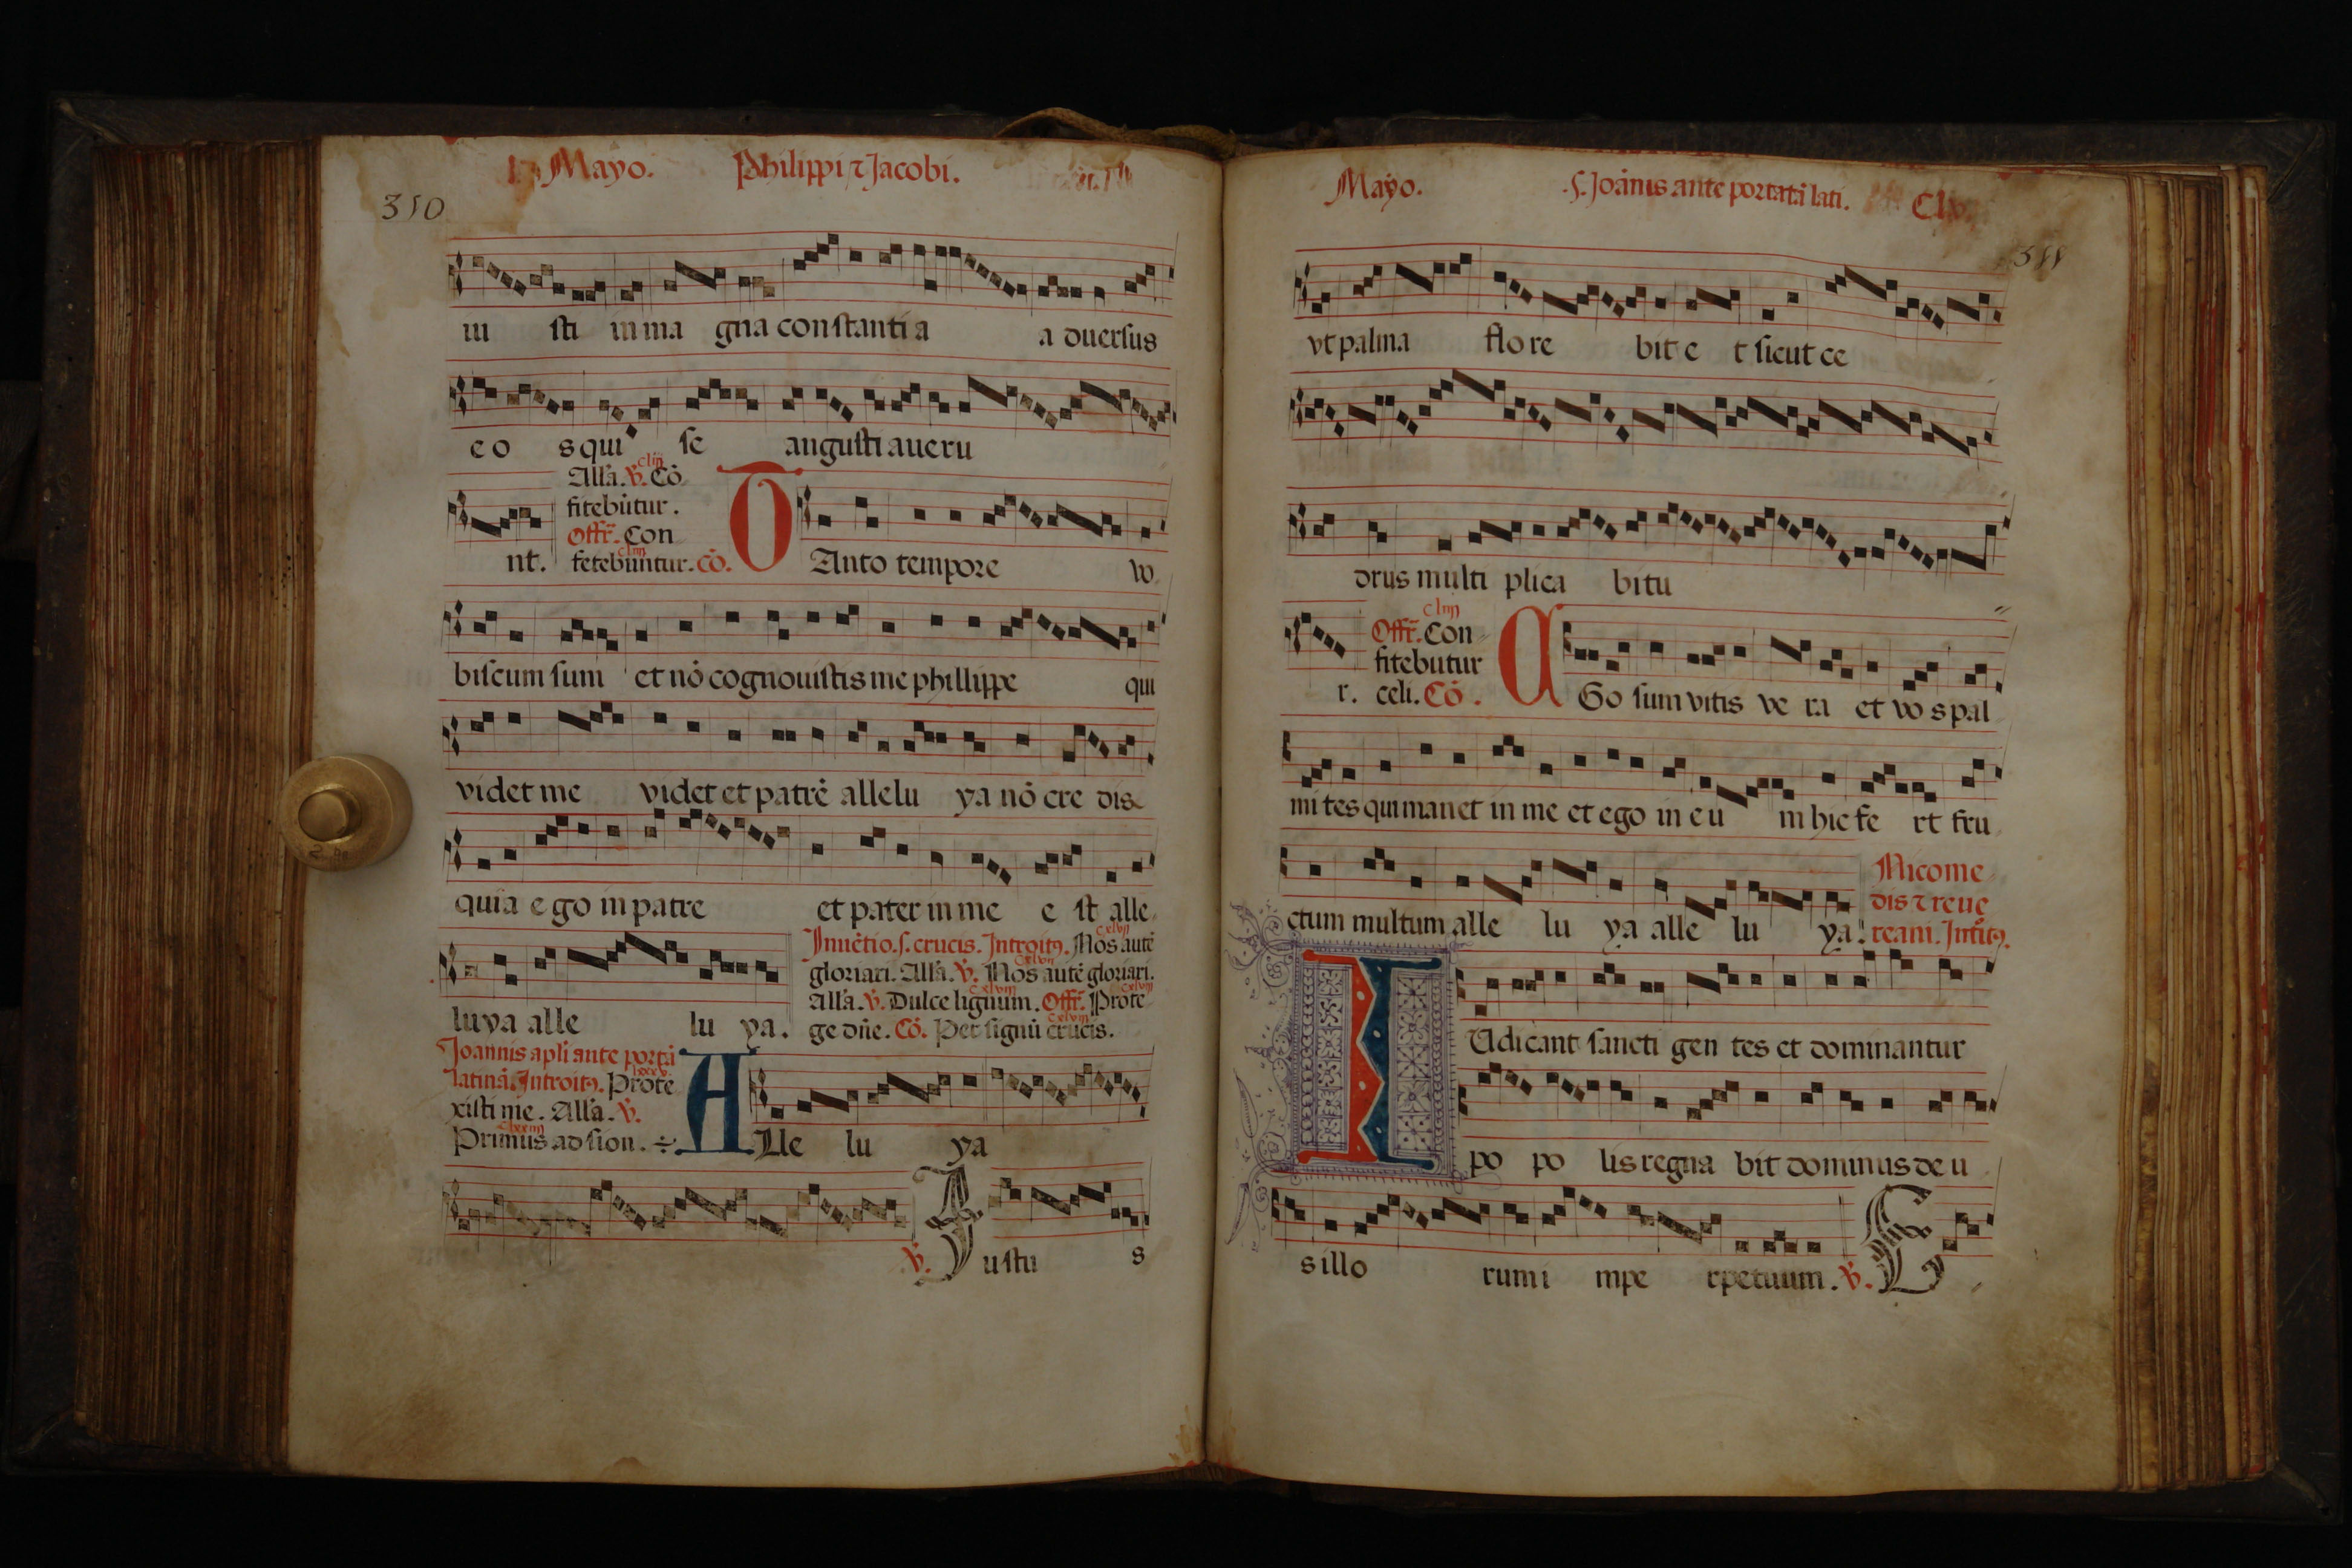 Mayo. Philippi ⁊ Jacobi.
310
iu sti in ma gna constanti a a duersus
e o s qui se angusti aueru
Alľa. ꝟ. Cō
fitebūtur.
Offr̄. Con
nt. fetebūntur. cō. T Anto tempore vo
biscum sum et nō cognouistis me phillippe qui
videt me videt et patrē allelu ya nō cre dis
quia e go in patre et pater in me e st alle
luya alle lu ya.
Inuētio. s. crucis. Introitꝰ. Nos autē
gloriari. Alľa. ꝟ. Nos autē gloriari.
Alľa. ꝟ. Dulce lignum. Offr̄. Prote
ge dn̄e. Cō. Per signū crucis.
Joannis apľi ante portā
latinā. Introitꝰ. Prote
xisti me. Alľa. ꝟ.
Primus ad sion. A Lle lu ya
ꝟ. J ustu s
Mayo. .S. Joānis ante portatā lati. Clv.
311
vt palma flo re bit e t sicut ce
drus multi plica bitu
Offr̄. Con
fitebutur
r. celi. Cō. E Go sum vitis ve ra et vo s pal
mi tes qui manet in me et ego in e u m hic fe rt fru
ctum multum alle lu ya alle lu ya.
Nicome
dis ⁊ reue
reani. Intitꝰ.
I Udicant sancti gen tes et dominantur
po po lis regna bit dominus de u
s illo rum i mpe rpetuum. ꝟ. E